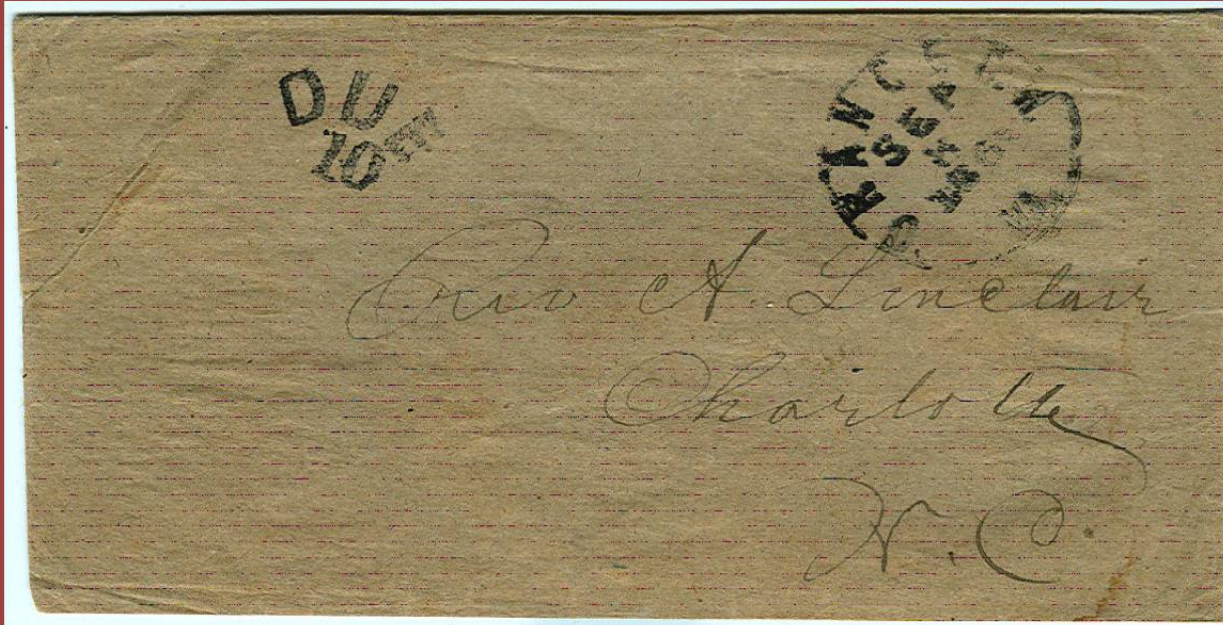 DU
10
SEP
VA
Rev A. Sinclair
Charlotte
N.C.